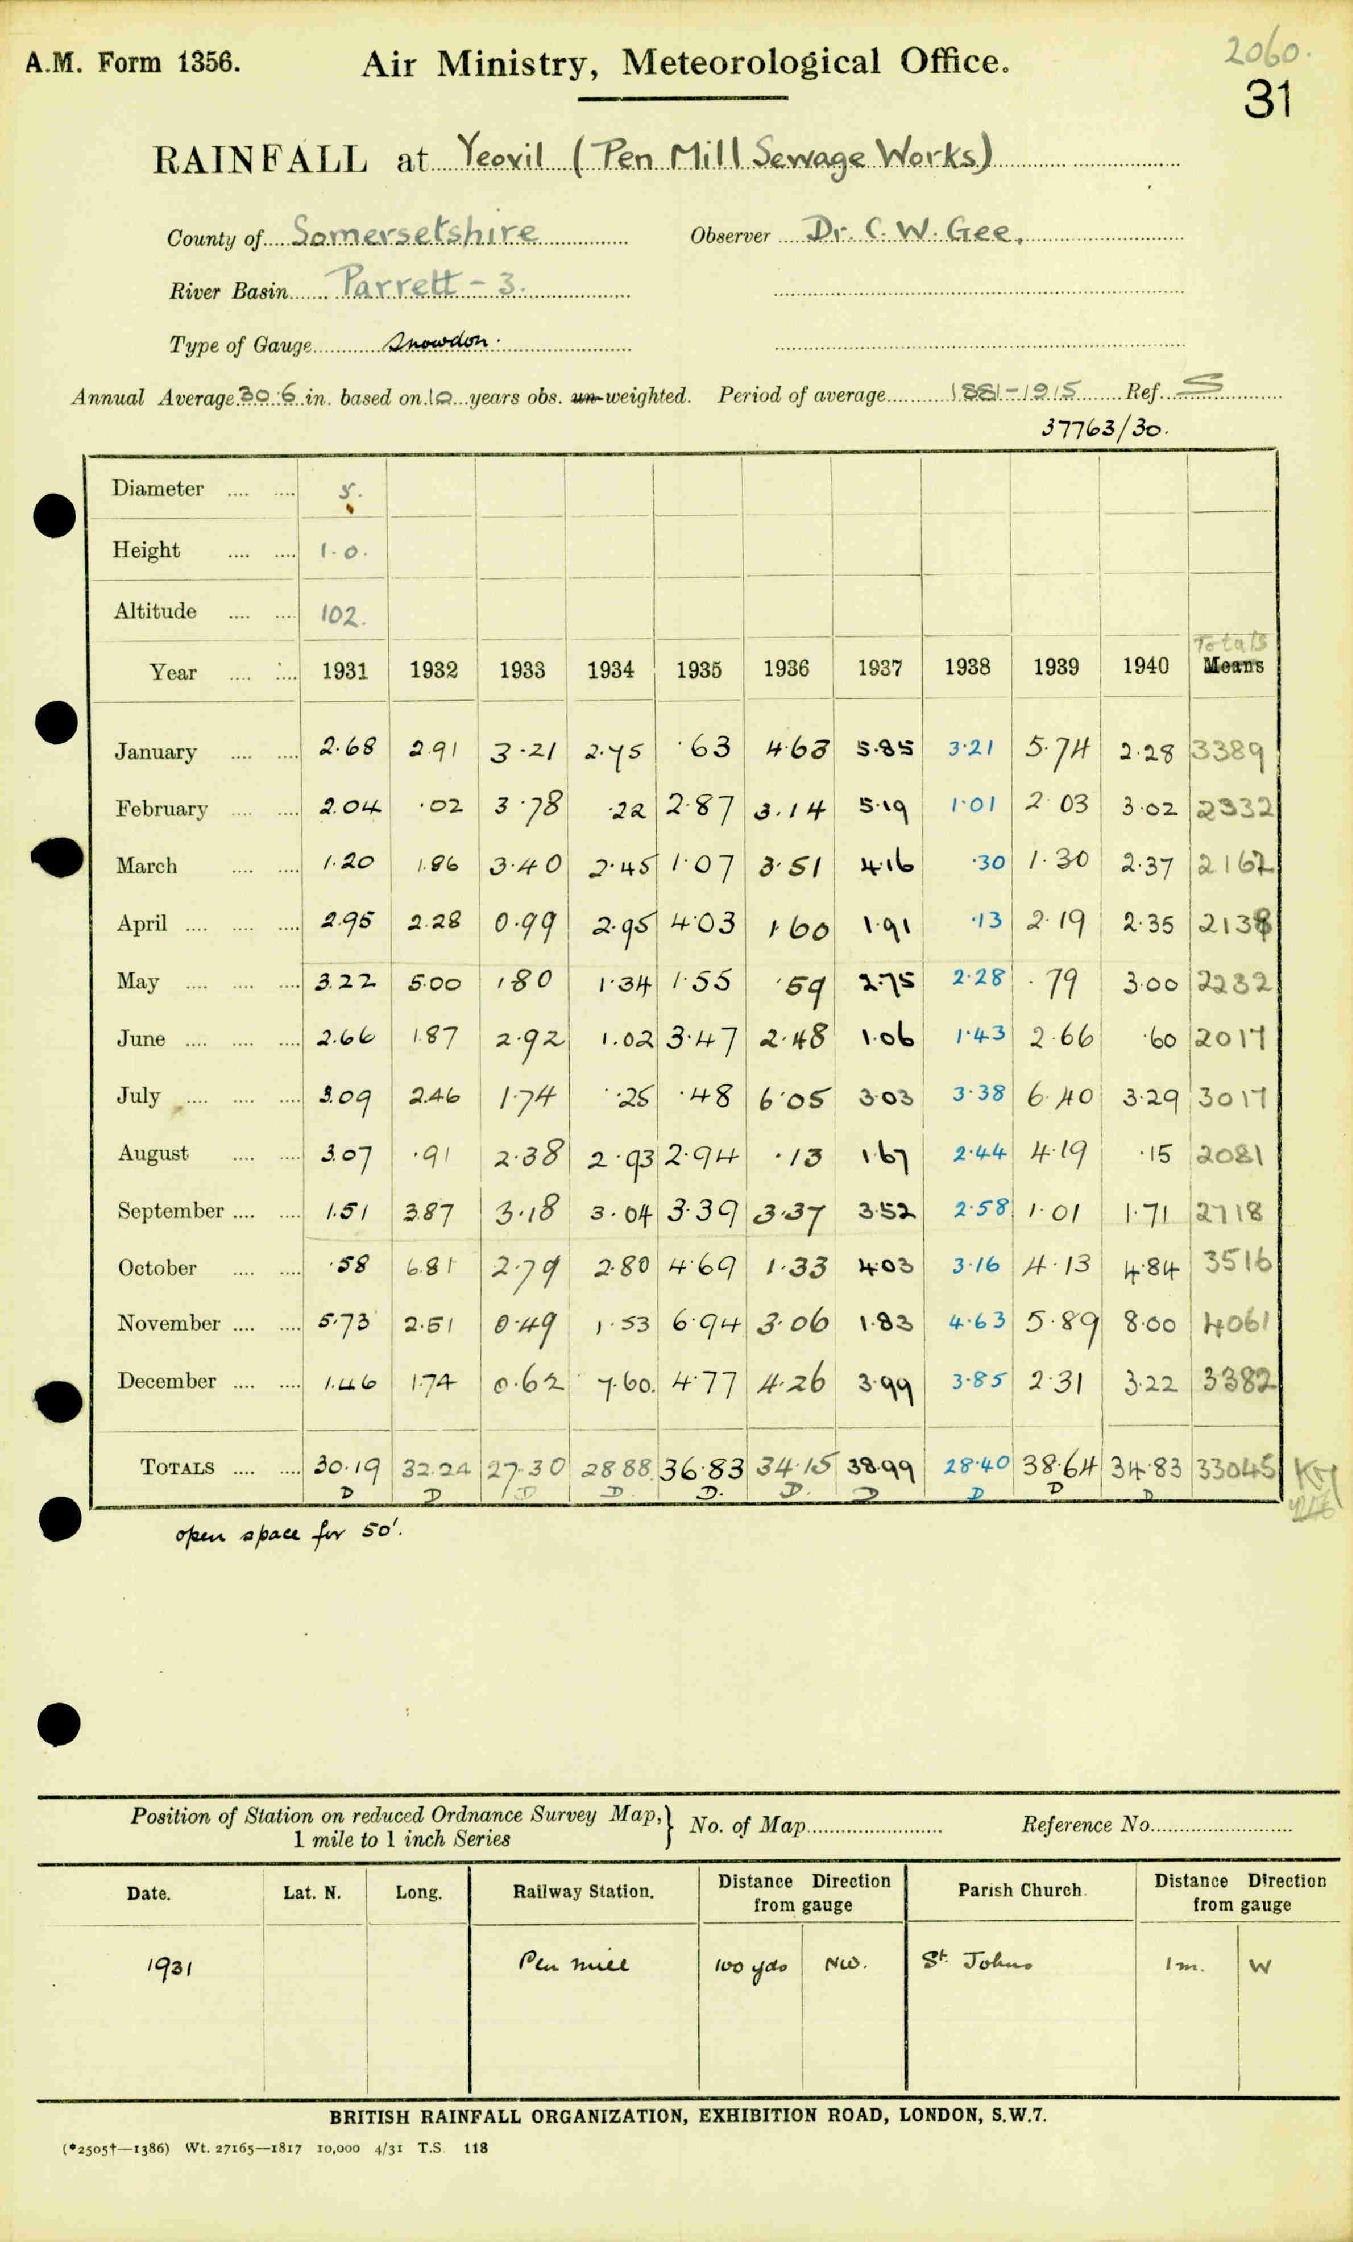 2060.
A.M. Form 1356. Air Ministry, Meteorological Office.
31
RAINFALL at Yeovil (Pen Mill Sewage Works)
County of Somersetshire Observer Dr. C. W. Gee,
River Basin Parrett - 3.
Type of Gauge Snowdon.
Annual Average 30.6 in. based on 10 years obs. un-weighted. Period of average 1881-1915 Ref. S
37763/30.
Diameter .... .... 5.
Height .... .... 1.0.
Altitude .... .... 102.
Totals
Year .... .... 1931 1932 1933 1934 1935 1936 1937 1938 1939 1940 Means
January .... .... 2.68 2.91 3.21 2.75 .63 4.63 5.85 3.21 5.74 2.28 3389
February .... .... 2.04 .02 3.78 .22 2.87 3.14 5.19 1.01 2.03 3.02 2332
March .... .... 1.20 1.86 3.40 2.45 1.07 3.51 4.16 .30 1.30 2.37 2162
April .... .... .... 2.95 2.28 0.99 2.95 4.03 1.60 1.91 .13 2.19 2.35 2138
May .... .... .... 3.22 5.00 1.80 1.34 1.55 .59 2.75 2.28 .79 3.00 2232
June .... .... .... 2.66 1.87 2.92 1.02 3.47 2.48 1.06 1.43 2.66 .60 2017
July .... .... .... 3.09 2.46 1.74 .25 .48 6.05 3.03 3.38 6.40 3.29 3017
August .... .... 3.07 .91 2.38 2.93 2.94 .13 1.67 2.44 4.19 .15 2081
September .... .... 1.51 3.87 3.18 3.04 3.39 3.37 3.52 2.58 1.01 1.71 2718
October .... .... .58 6.81 2.79 2.80 4.69 1.33 4.03 3.16 4.13 4.84 3516
November .... .... 5.73 2.51 0.49 1.53 6.94 3.06 1.83 4.63 5.89 8.00 4061
December .... .... 1.46 1.74 0.62 7.60. 4.77 4.26 3.99 3.85 2.31 3.22 3382
TOTALS .... .... 30.19 32.24 27.30 28.88. 36.83 34.15 38.99 28.40 38.64 34.83 33045
D D D D. D. D. D D D D
open space for 50'.
Position of Station on reduced Ordnance Survey Map, 1 mile to 1 inch Series No. of Map Reference No.
Date. Lat. N. Long. Railway Station. Distance Direction from gauge Parish Church. Distance Direction from gauge
1931 Pen Mill 100 yds NW. St. Johns 1 m. W
BRITISH RAINFALL ORGANIZATION, EXHIBITION ROAD, LONDON, S.W.7.
(*2505†—1386) Wt. 27165—1817 10,000 4/31 T.S. 118